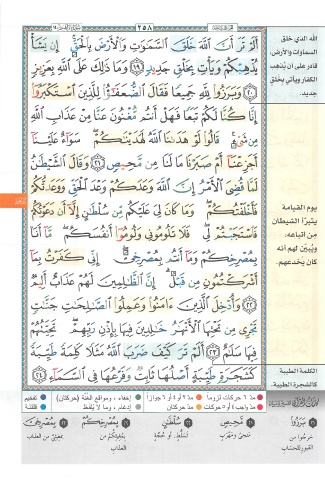 ٢٥٨
أَلَمْ تَرَ أَنَّ ٱللَّهَ خَلَقَ ٱلسَّمَٰوَٰتِ وَٱلْأَرْضَ بِٱلْحَقِّ إِن يَشَأْ
يُذْهِبْكُمْ وَيَأْتِ بِخَلْقٍ جَدِيدٍ ١٩ وَمَا ذَٰلِكَ عَلَى ٱللَّهِ بِعَزِيزٍ
٢٠ وَبَرَزُوا۟ لِلَّهِ جَمِيعًا فَقَالَ ٱلضُّعَفَٰٓؤُا۟ لِلَّذِينَ ٱسْتَكْبَرُوٓا۟
إِنَّا كُنَّا لَكُمْ تَبَعًا فَهَلْ أَنتُم مُّغْنُونَ عَنَّا مِنْ عَذَابِ ٱللَّهِ
مِن شَىْءٍ قَالُوا۟ لَوْ هَدَىٰنَا ٱللَّهُ لَهَدَيْنَٰكُمْ سَوَآءٌ عَلَيْنَآ
أَجَزِعْنَآ أَمْ صَبَرْنَا مَا لَنَا مِن مَّحِيصٍ ٢١ وَقَالَ ٱلشَّيْطَٰنُ
لَمَّا قُضِىَ ٱلْأَمْرُ إِنَّ ٱللَّهَ وَعَدَكُمْ وَعْدَ ٱلْحَقِّ وَوَعَدتُّكُمْ
فَأَخْلَفْتُكُمْ وَمَا كَانَ لِىَ عَلَيْكُم مِّن سُلْطَٰنٍ إِلَّآ أَن دَعَوْتُكُمْ
فَٱسْتَجَبْتُمْ لِى فَلَا تَلُومُونِى وَلُومُوٓا۟ أَنفُسَكُم مَّآ أَنَا۠
بِمُصْرِخِكُمْ وَمَآ أَنتُم بِمُصْرِخِىَّ إِنِّى كَفَرْتُ بِمَآ
أَشْرَكْتُمُونِ مِن قَبْلُ إِنَّ ٱلظَّٰلِمِينَ لَهُمْ عَذَابٌ أَلِيمٌ
٢٢ وَأُدْخِلَ ٱلَّذِينَ ءَامَنُوا۟ وَعَمِلُوا۟ ٱلصَّٰلِحَٰتِ جَنَّٰتٍ
تَجْرِى مِن تَحْتِهَا ٱلْأَنْهَٰرُ خَٰلِدِينَ فِيهَا بِإِذْنِ رَبِّهِمْ تَحِيَّتُهُمْ
فِيهَا سَلَٰمٌ ٢٣ أَلَمْ تَرَ كَيْفَ ضَرَبَ ٱللَّهُ مَثَلًا كَلِمَةً طَيِّبَةً
كَشَجَرَةٍ طَيِّبَةٍ أَصْلُهَا ثَابِتٌ وَفَرْعُهَا فِى ٱلسَّمَآءِ ٢٤
الله الذي خلق
السماوات والأرض،
قادر على أن يُذهب
الكفار ويأتي بخلق
جديد.
يوم القيامة
يتبرّأ الشيطان
من أتباعه،
ويُبيّن لهم أنه
كان يخدعهم.
الكلمة الطيبة
كالشجرة الطيبة.
مدّ ٦ حركات لزوماً
مدّ ٢ أو ٤ أو ٦ جوازاً
إخفاء، ومواقع الغُنَّة (حركتان)
تفخيم
مدّ حركتان
إدغام، وما لا يُلفَظ
قلقلة
بَرَزُوا
خرجوا من
القبور للحساب
مَحِيصٍ
منجى ومهرب
سُلْطَانٍ
تسلّط أو حجّة
بِمُصْرِخِكُمْ
بمغيثكم من
العذاب
بِمُصْرِخِيَّ
بمغيثيّ من العذاب